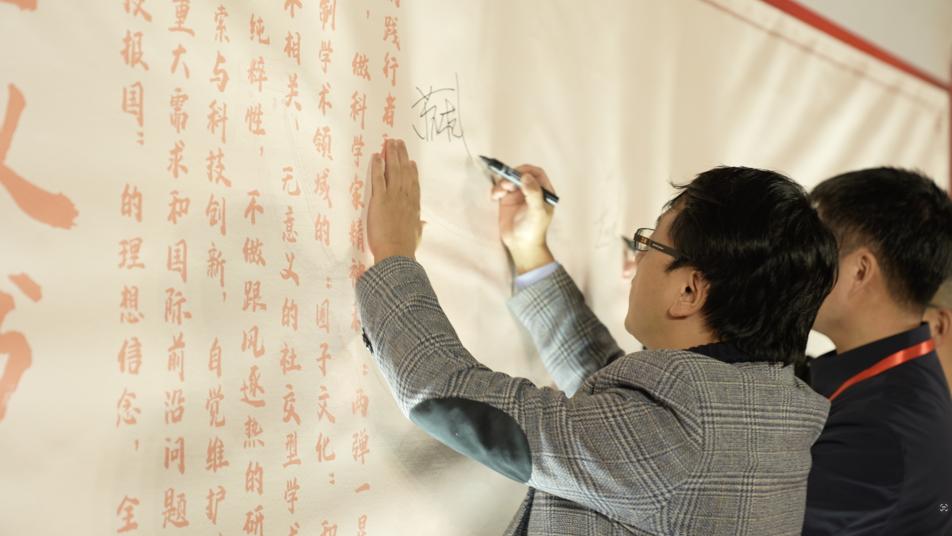 践行者
，做科学家精神
两弹一
制学术领域的“圈子文化”
不相关、无意义的社交型学术
纯粹性，不做跟风逐热的研
索与科技创新，自觉维护
重大需求和国际前沿问题
报国”的理想信念，全